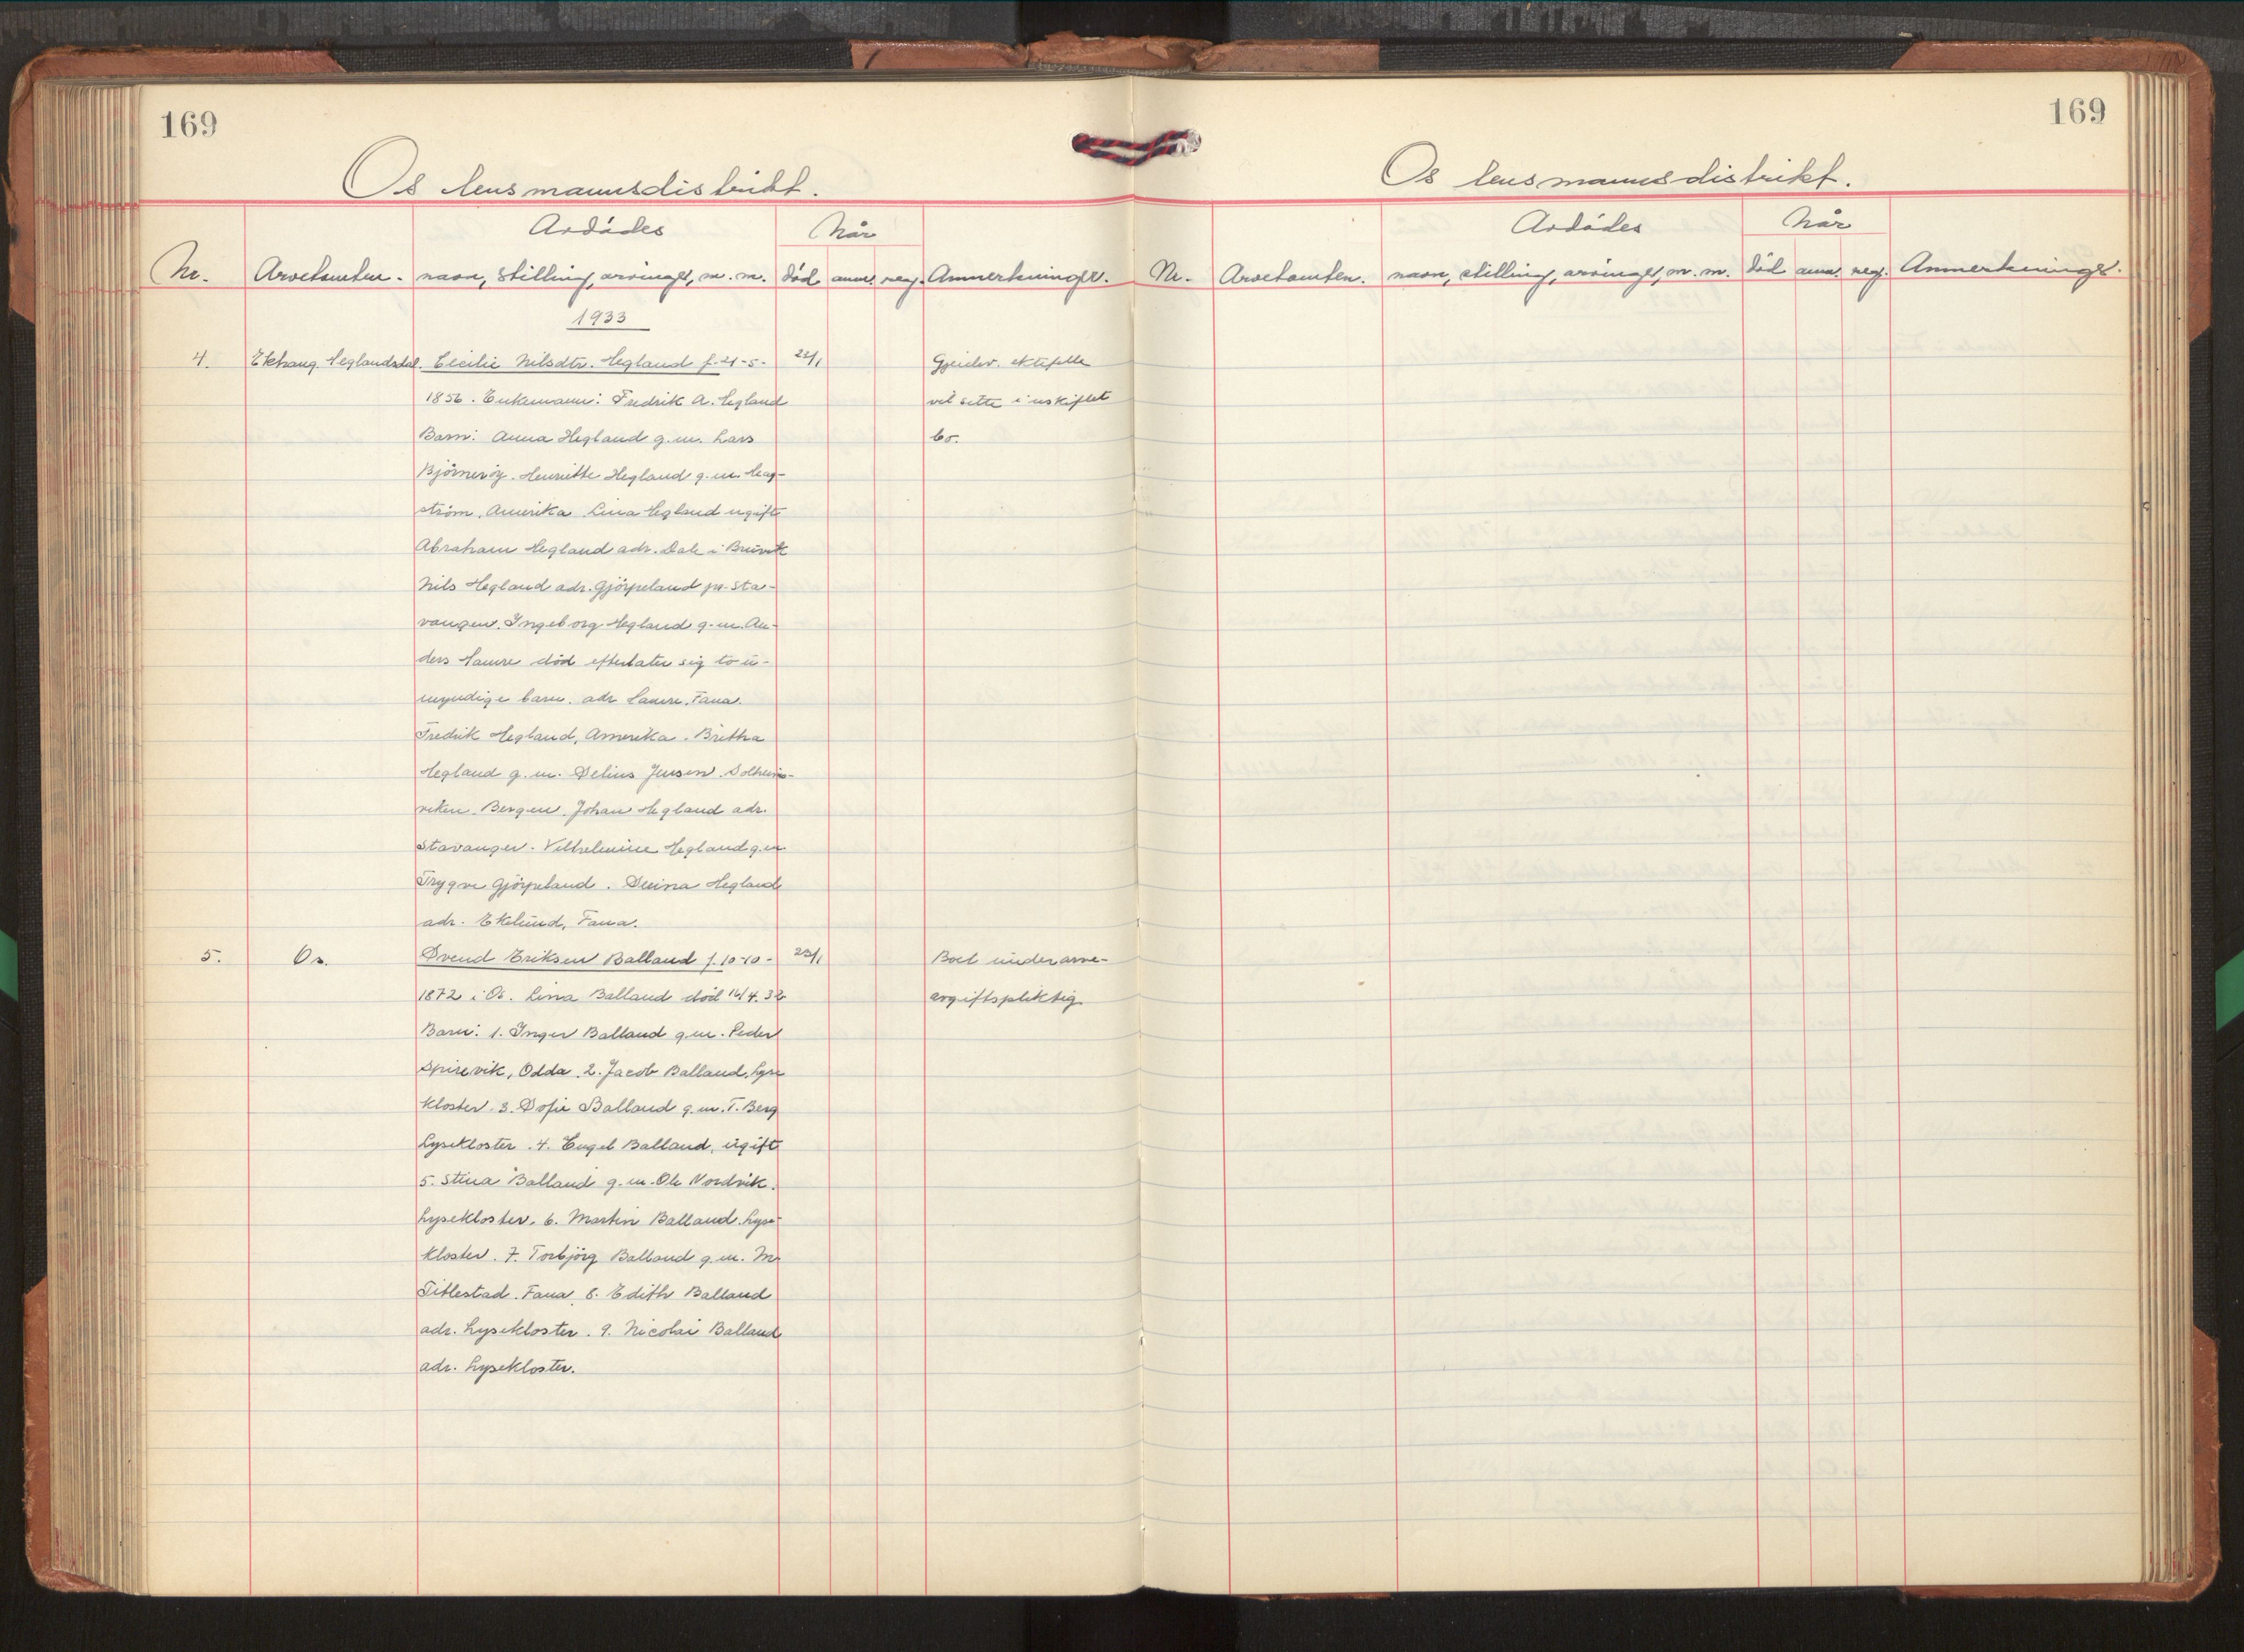 169
Os lensmannsdistrikt.
Avdødes
Når
Nr. Arvetomten. navn, stilling, arvinger, m. m. död anm. reg. Anmerkninger.
1933
4. Ekhaug. Heglandsdal. Cecilie Nilsdtr. Hegland f. 21-5- 22/1 Gjenlev. ektefelle
1856. Enkemann: Fredrik A. Hegland vil sitte i uskiftet
Barn: Anna Hegland g.m. Lars bo.
Björneröy. Henriette Hegland g.m. Heng-
ström, Amerika. Lina Hegland ugifte
Abraham Hegland adr. Dale i Bruvik
Nils Hegland adr. Gjörpeland pr. Sta-
vanger. Ingeborg Hegland g.m. An-
ders Hamre död efterlater sig to u-
myndige barn. adr Hamre, Fana.
Fredrik Hegland, Amerika. Britha
Hegland g.m. Delius Jensen. Solheims-
viken. Bergen. Johan Hegland adr.
Stavanger. Vilhelmine Hegland g.m.
Trygve Gjörpeland. Hegland
adr. Ekelund, Fana.
5. Os. Svend Eriksen Balland f. 10-10- 23/1 Boet under arve-
1872 i Os. Lina Balland död 16/4.32 avgiftspliktig
Barn: 1. Inger Balland g.m. Peder
Spirevik, Odda. 2. Jacob Balland, Lyse
kloster. 3. Sofie Balland g.m. T. Berg
Lysekloster. 4. Engel Balland, ugift
5. Stina Balland g.m. Ole Nordvik.
Lysekloster. 6. Martin Balland. Lyse-
kloster. 7. Torbjörg Balland g.m. M.
Titlestad. Fana. 8. Edith Balland
adr. Lysekloster. 9. Nicolai Balland
adr. Lysekloster.
169
Os lensmannsdistrikt.
Avdødes
Når
Nr. Arvetomten. navn, stilling, arvinger, m. m. död anm. reg. Anmerkninger.